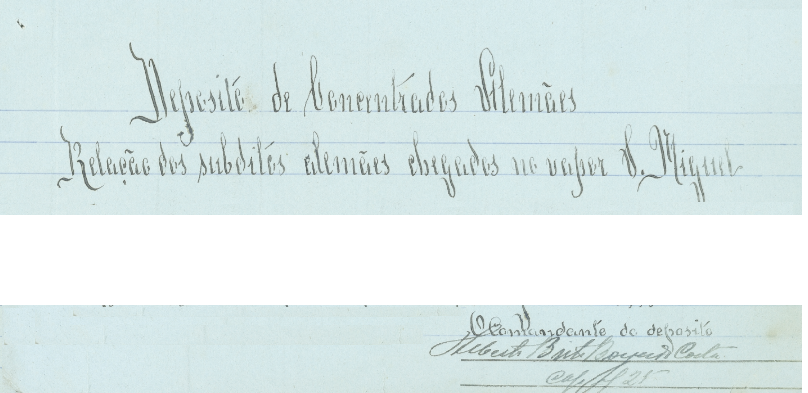 Deposito de Concentrados Alemães
Relação dos subditos alemães chegados no vapor S. Miguel
O Comandante do deposito
Alberto Costa
Cap. 25